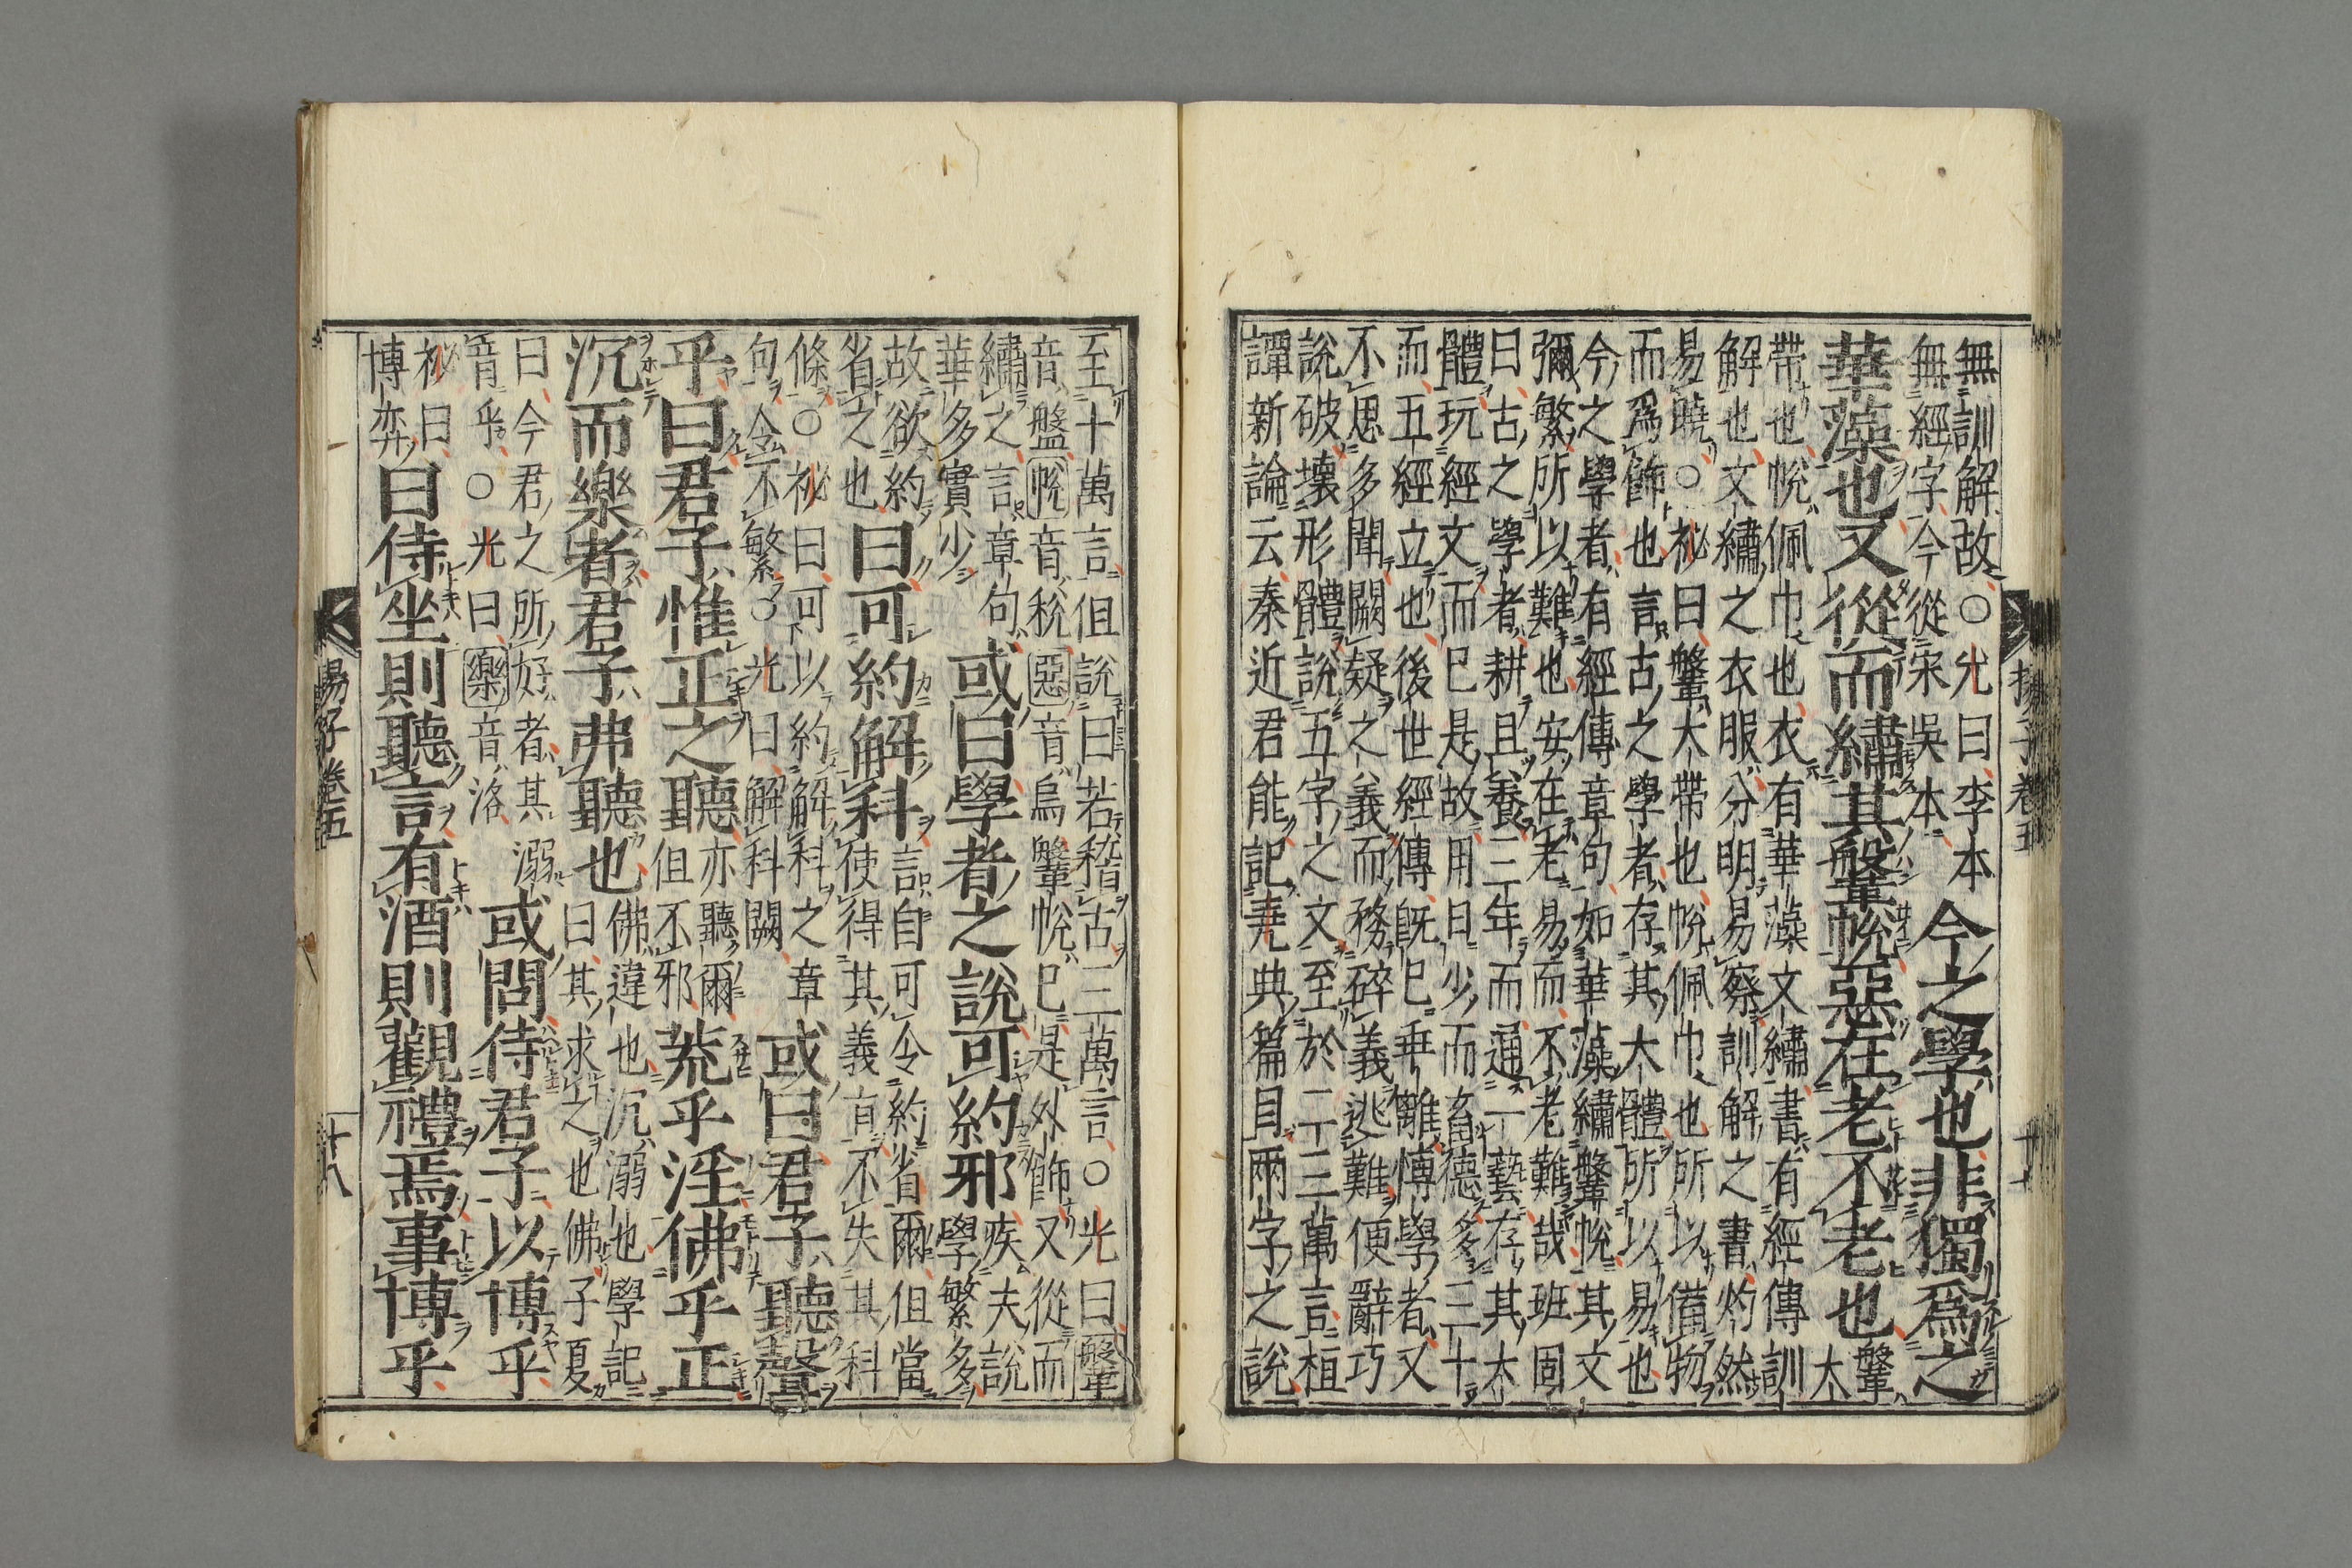 無訓解故○光曰李本
無經字今從宋吳本
今之學也非獨爲之
華藻也又從而繡其鞶帨惡在老不老也
鞶大
帶也帨佩巾也衣有華藻文繡書有經傳訓
解也文繡之衣服分明易察訓解之書灼然
易曉○祕曰鞶大帶也帨佩巾也所以備物
而爲飾也言古之學者存其大體所以易也
今之學者有經傳章句如華藻繡鞶帨其文
彌繁所以難也安在老易而不老難哉班固
曰古之學者耕且養三年而通一藝存其大
體玩經文而已是故用日少而畜德多三十
而五經立也後世經傳旣已乖離博學者又
不思多聞闕疑之義而務碎義逃難便辭巧
說破壞形體說五字之文至於二三萬言桓
譚新論云秦近君能記堯典篇目兩字之說
揚子卷五
十七
至十萬言但說曰若稽古三萬言○光曰鞶
音盤帨音稅惡音烏鞶帨已是外飾又從而
繡之言章句
華多實少
或曰學者之說可約邪
疾夫說
學繁多
故欲約
省之也
曰可約解科
言自可令約省爾但當
使得其義有不失其科
條○祕曰可以約解科之章
句令不繁○光曰解科闕
或曰君子聽聲
乎曰君子惟正之聽
亦聽爾
但不邪
荒乎淫佛乎正
沉而樂者君子弗聽也
佛違也沉溺也學記
曰其求之也佛子夏
曰今君之所好者其溺
音乎○光曰樂音洛
或問侍君子以博乎
祕曰
博弈
曰侍坐則聽言有酒則觀禮焉事博乎
揚子卷五
十八